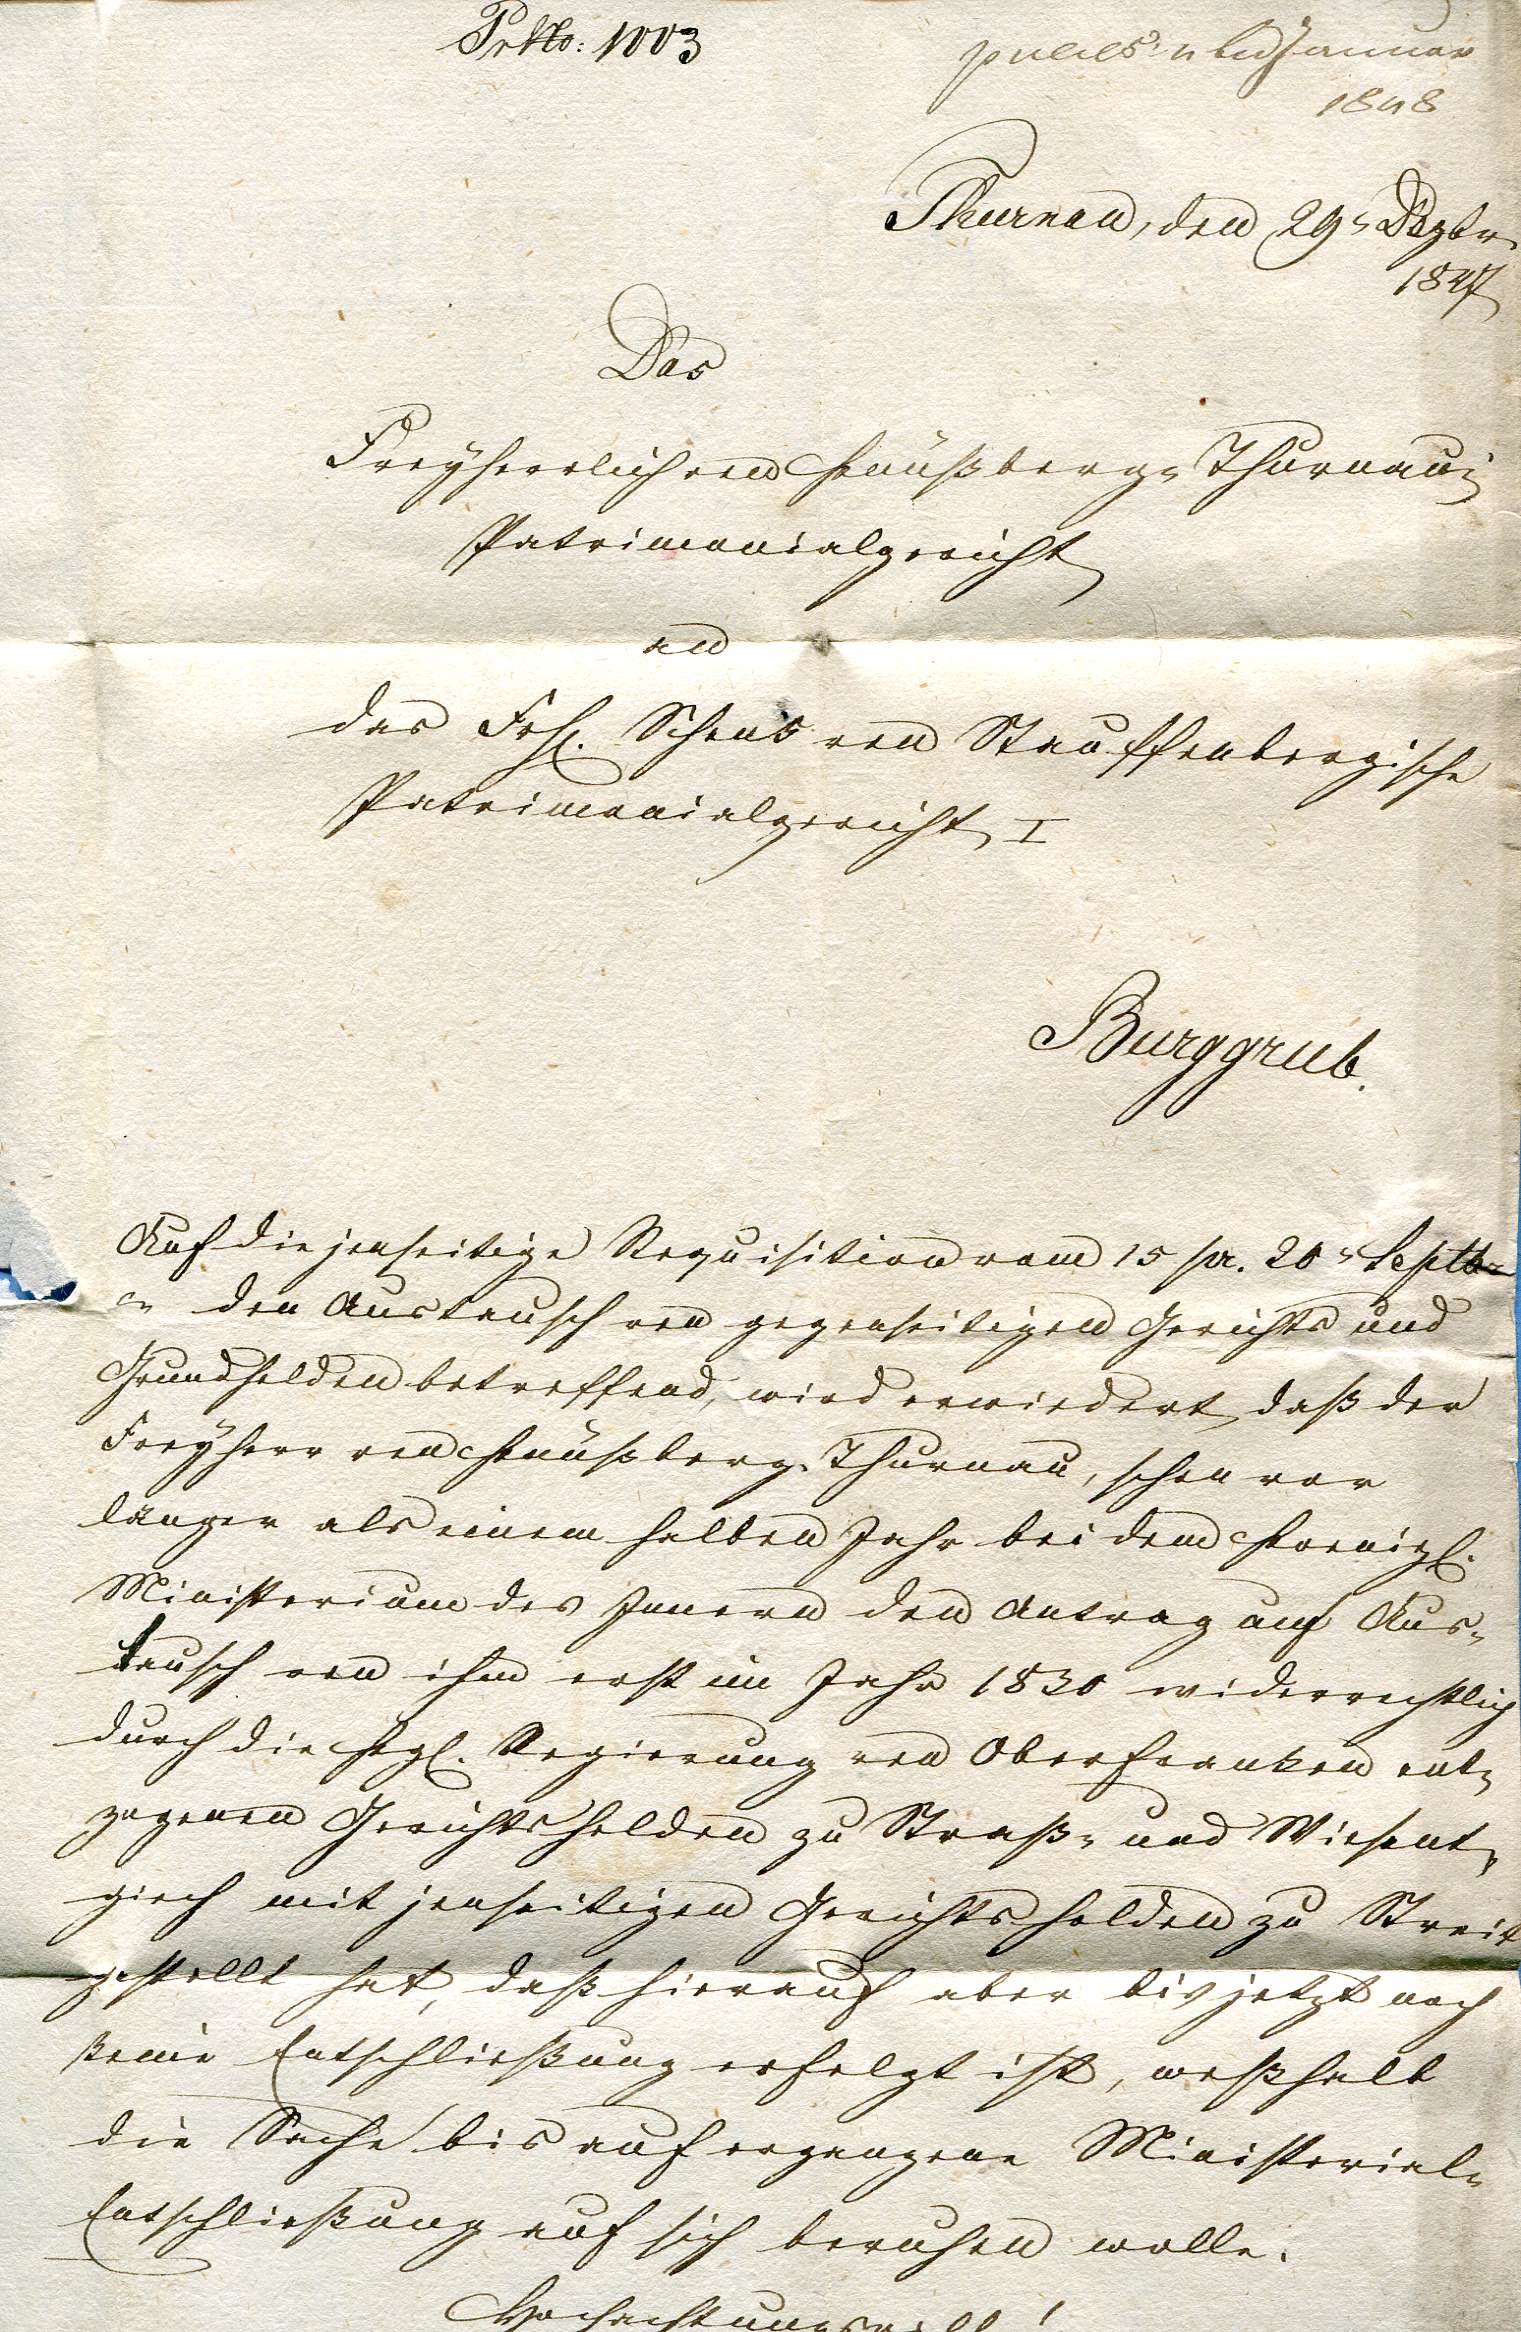 Prtko: 1003
Januar
1848
Thurnau, den 29. Dezbr.
1847
Das
Freyherrlich von Künßberg-Thurnau'
Patrimonialgericht
an
das Frh. Schenk von Stauffenbergische
Patrimonialgericht I
Burggrub.
Auf die jenseitige Requisition vom 15 pr. 20. Septbr
den Austausch von gegenseitigen Gerichts und
Grundholden betreffend, wird erwiedert, daß der
Freyherr von Künßberg-Thurnau, schon vor
länger als einem halben Jahr bei dem Koenigl.
Ministerium des Innern den Antrag auf Aus-
tausch von ihm erst im Jahr 1830 widerrechtlich
durch die Kgl. Regierung von Oberfranken ent-
zogenen Gerichtsholden zu Straß- und Wiesent-
giech mit jenseitigen Gerichtsholden zu Streit
gestellt hat, daß hierauf aber bis jetzt noch
keine Entschließung erfolgt ist, weßhalb
die Sache bis auf ergangene Ministerial-
Entschließung auf sich beruhen wolle.
Hochachtungsvoll!